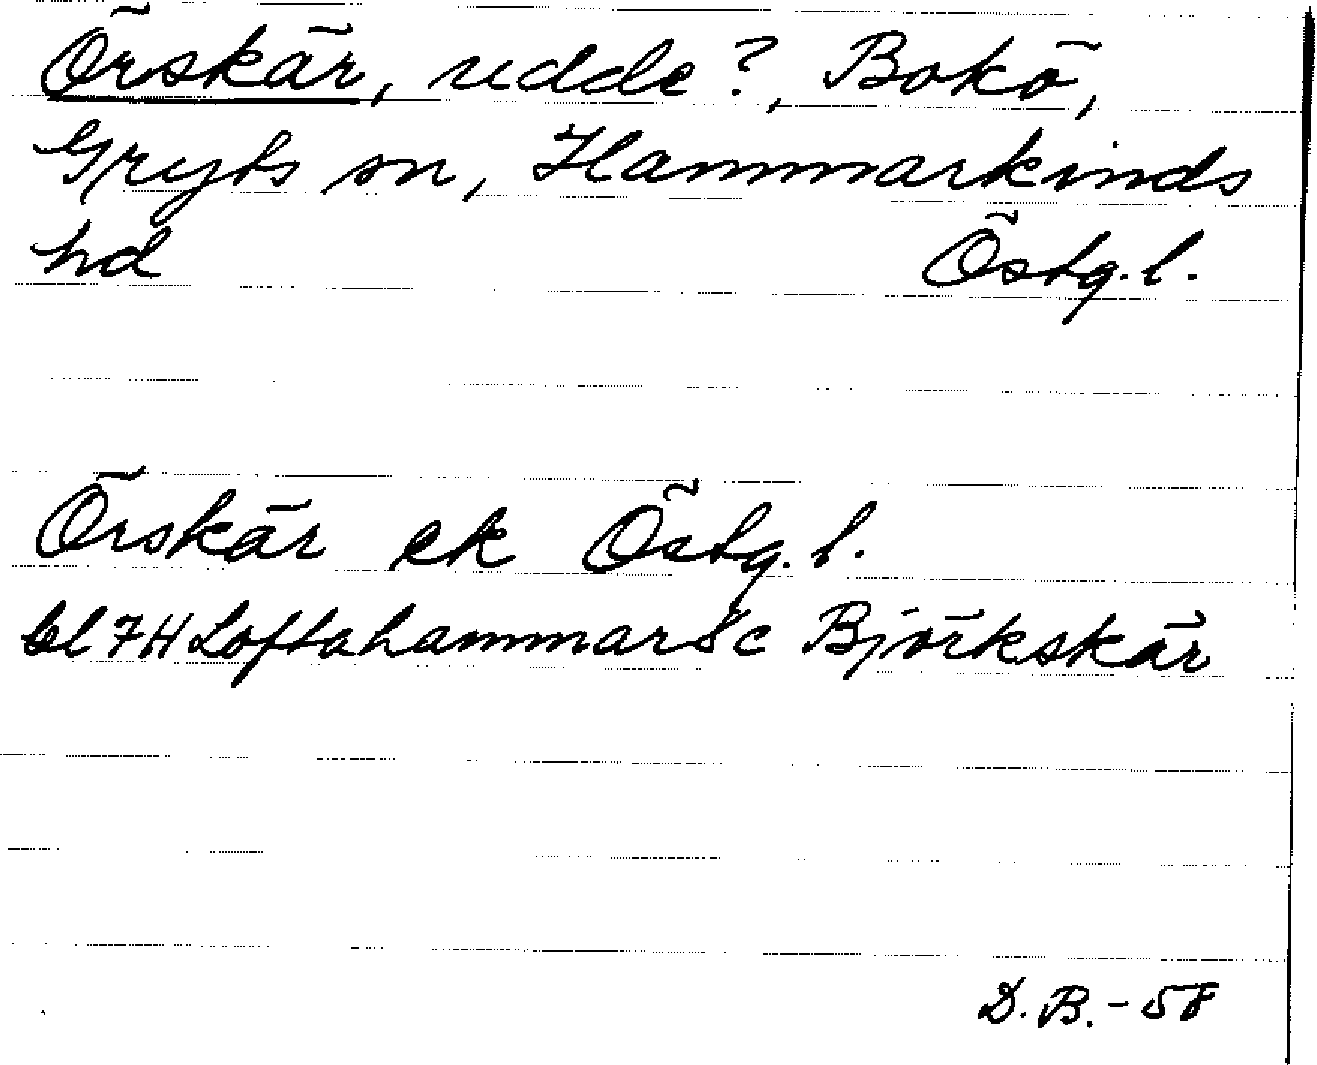 Örskär, udde?, Bokö,
Gryts sn, Hammarkinds
hd Östg. l.
Örskär ek Östg. l.
bl 7H Loftahammar Sc Björkskär
D. B. - 58